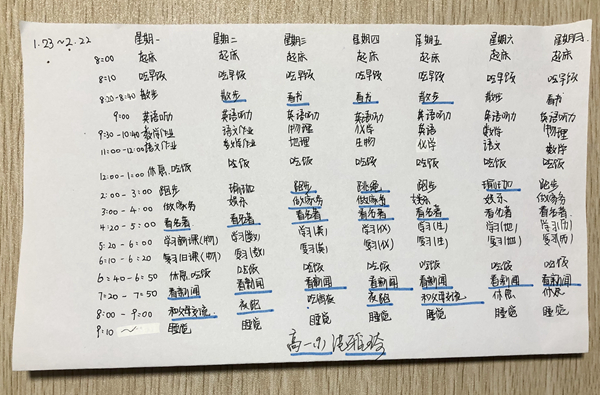 1.23~2.22 星期一 星期二 星期三 星期四 星期五 星期六 星期日
8:00 起床 起床 起床 起床 起床 起床 起床
8:10 吃早饭 吃早饭 吃早饭 吃早饭 吃早饭 吃早饭 吃早饭
8:20-8:40 散步 散步 看书 看书 散步 散步 看书
9:00 英语听力 英语听力 英语听力 英语听力 英语听力 英语听力 英语听力
9:30-10:40 数学作业 语文作业 物理 化学 英语 数学 物理
11:00-12:00 语文作业 数学作业 地理 生物 化学 语文 数学
12:00-1:00 休息.吃饭 吃饭 吃饭 吃饭 吃饭 吃饭 吃饭
2:00-3:00 跑步 瑜伽 跑步 跳绳 跑步 瑜伽 跑步
3:00-4:00 做家务 娱乐 做家务 做家务 娱乐 娱乐 做家务
4:20-5:00 看名著 看名著 看名著 看名著 看名著 看名著 看名著
5:20-6:00 学习新课(物) 学习(数) 学习(英) 学习(化) 学习(生) 学习(地) 学习(历)
6:10-6:20 复习旧课(物) 复习(数) 复习(英) 复习(化) 复习(生) 复习(地) 复习(历)
6:40-6:50 休息.吃饭 吃饭 吃饭 吃饭 吃饭 吃饭 吃饭
7:20-7:50 看新闻 看新闻 看新闻 看新闻 看新闻 看新闻 看新闻
8:00-9:00 和父母交流 夜跑 吃晚饭 夜跑 和父母交流 休息 休息
9:10~ 睡觉 睡觉 睡觉 睡觉 睡觉 睡觉 睡觉
高一